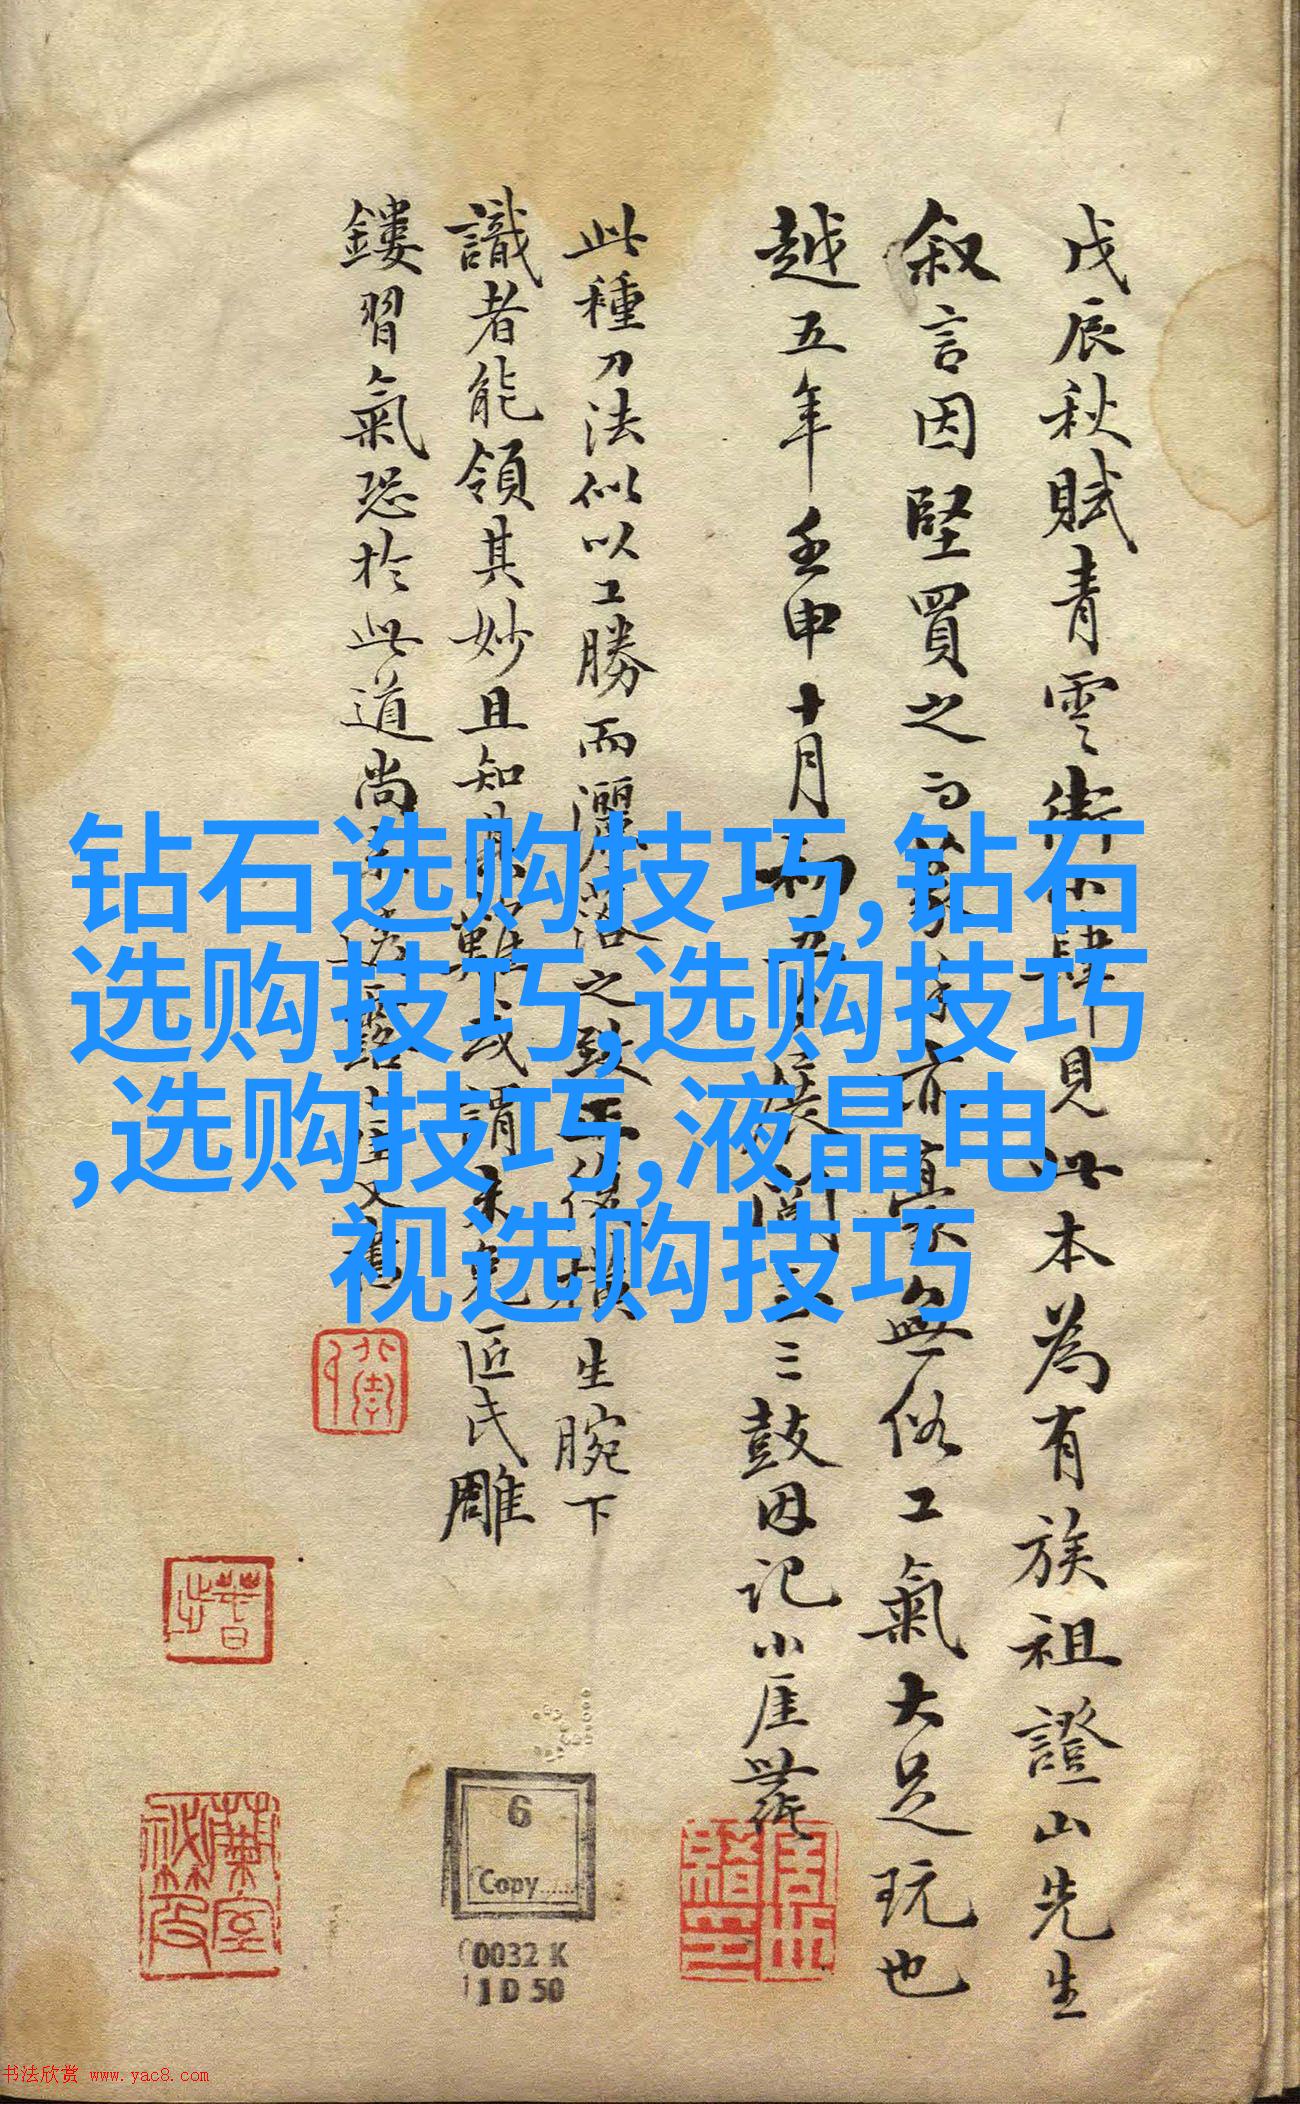 戊辰秋賦青雲街 肆見此本為有族祖證山先生
叙言因堅買之 亦 無俗工氣大足玩也
越五年壬申十月初五 三鼓因記小厓
此種刀法似以工勝而灑落之致 生腕下
識者能領其妙且知其難或謂未免匠氏雕
鏤習氣恐於此道尚
钻石选购技巧,钻石
选购技巧,选购技巧
,选购技巧,液晶电
视选购技巧
6
Copy......
0032 K
1 D 50
书法欣赏 www.yac8.com